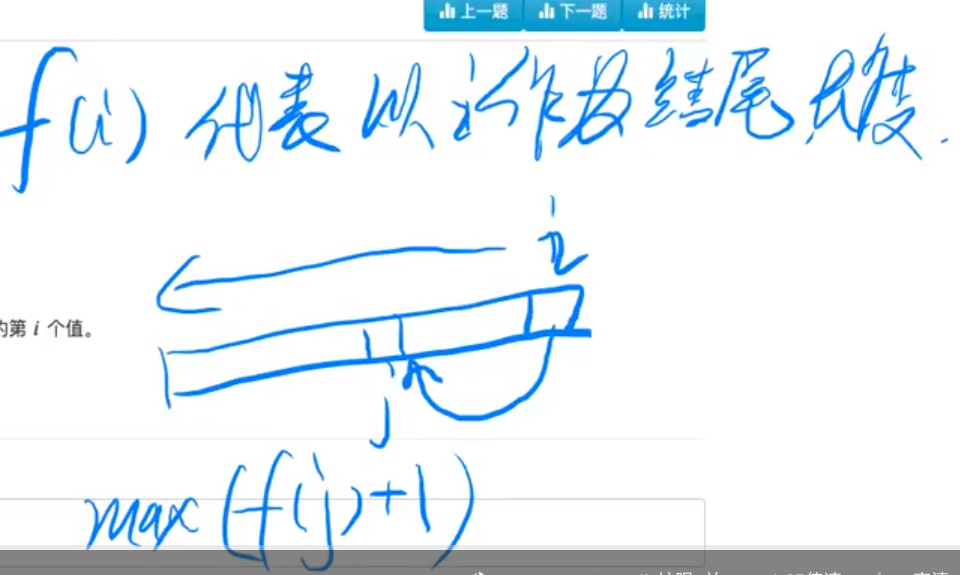 上一题 下一题 统计
f(i) 代表以i作为结尾长度.
i
的第 i 个值。
j
max(f(j)+1)